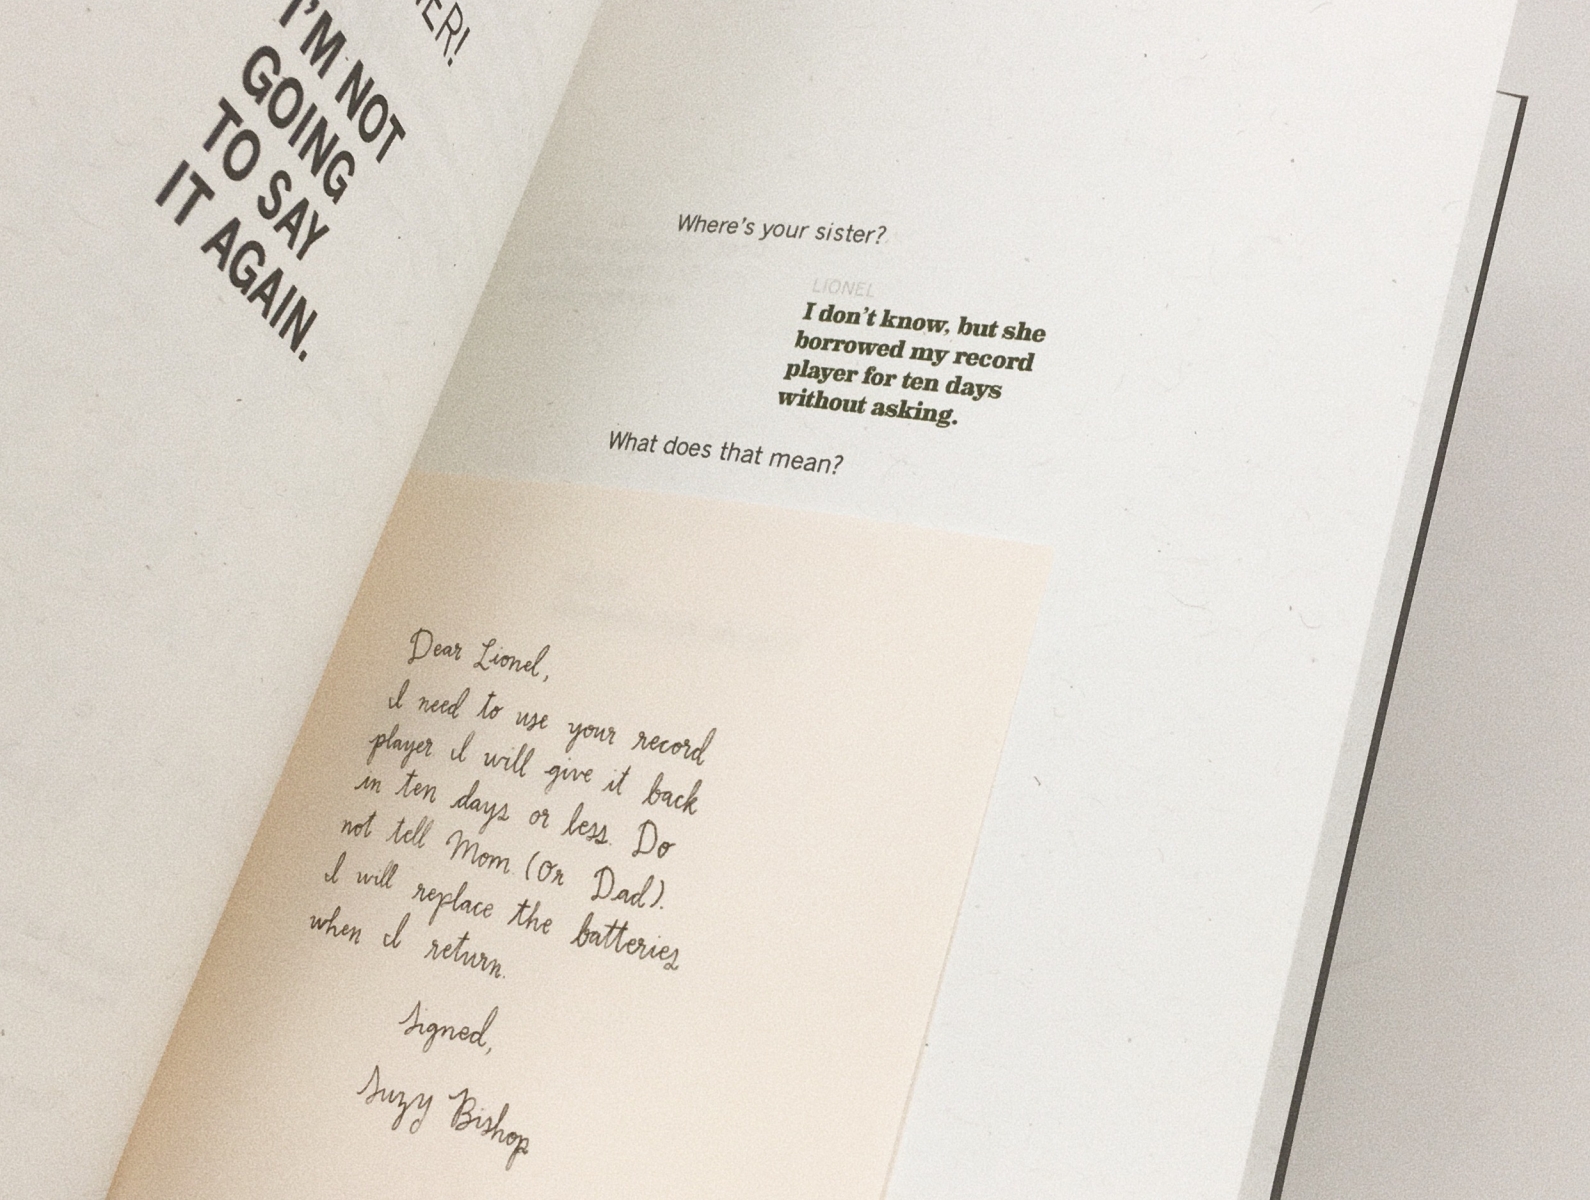 I'M NOT
GOING
TO SAY
IT AGAIN.
Where's your sister?
LIONEL
I don't know, but she
borrowed my record
player for ten days
without asking.
What does that mean?
Dear Lionel,
I need to use your record
player I will give it back
in ten days or less. Do
not tell Mom (Or Dad).
I will replace the batteries
when I return.
Signed,
Suzy Bishop